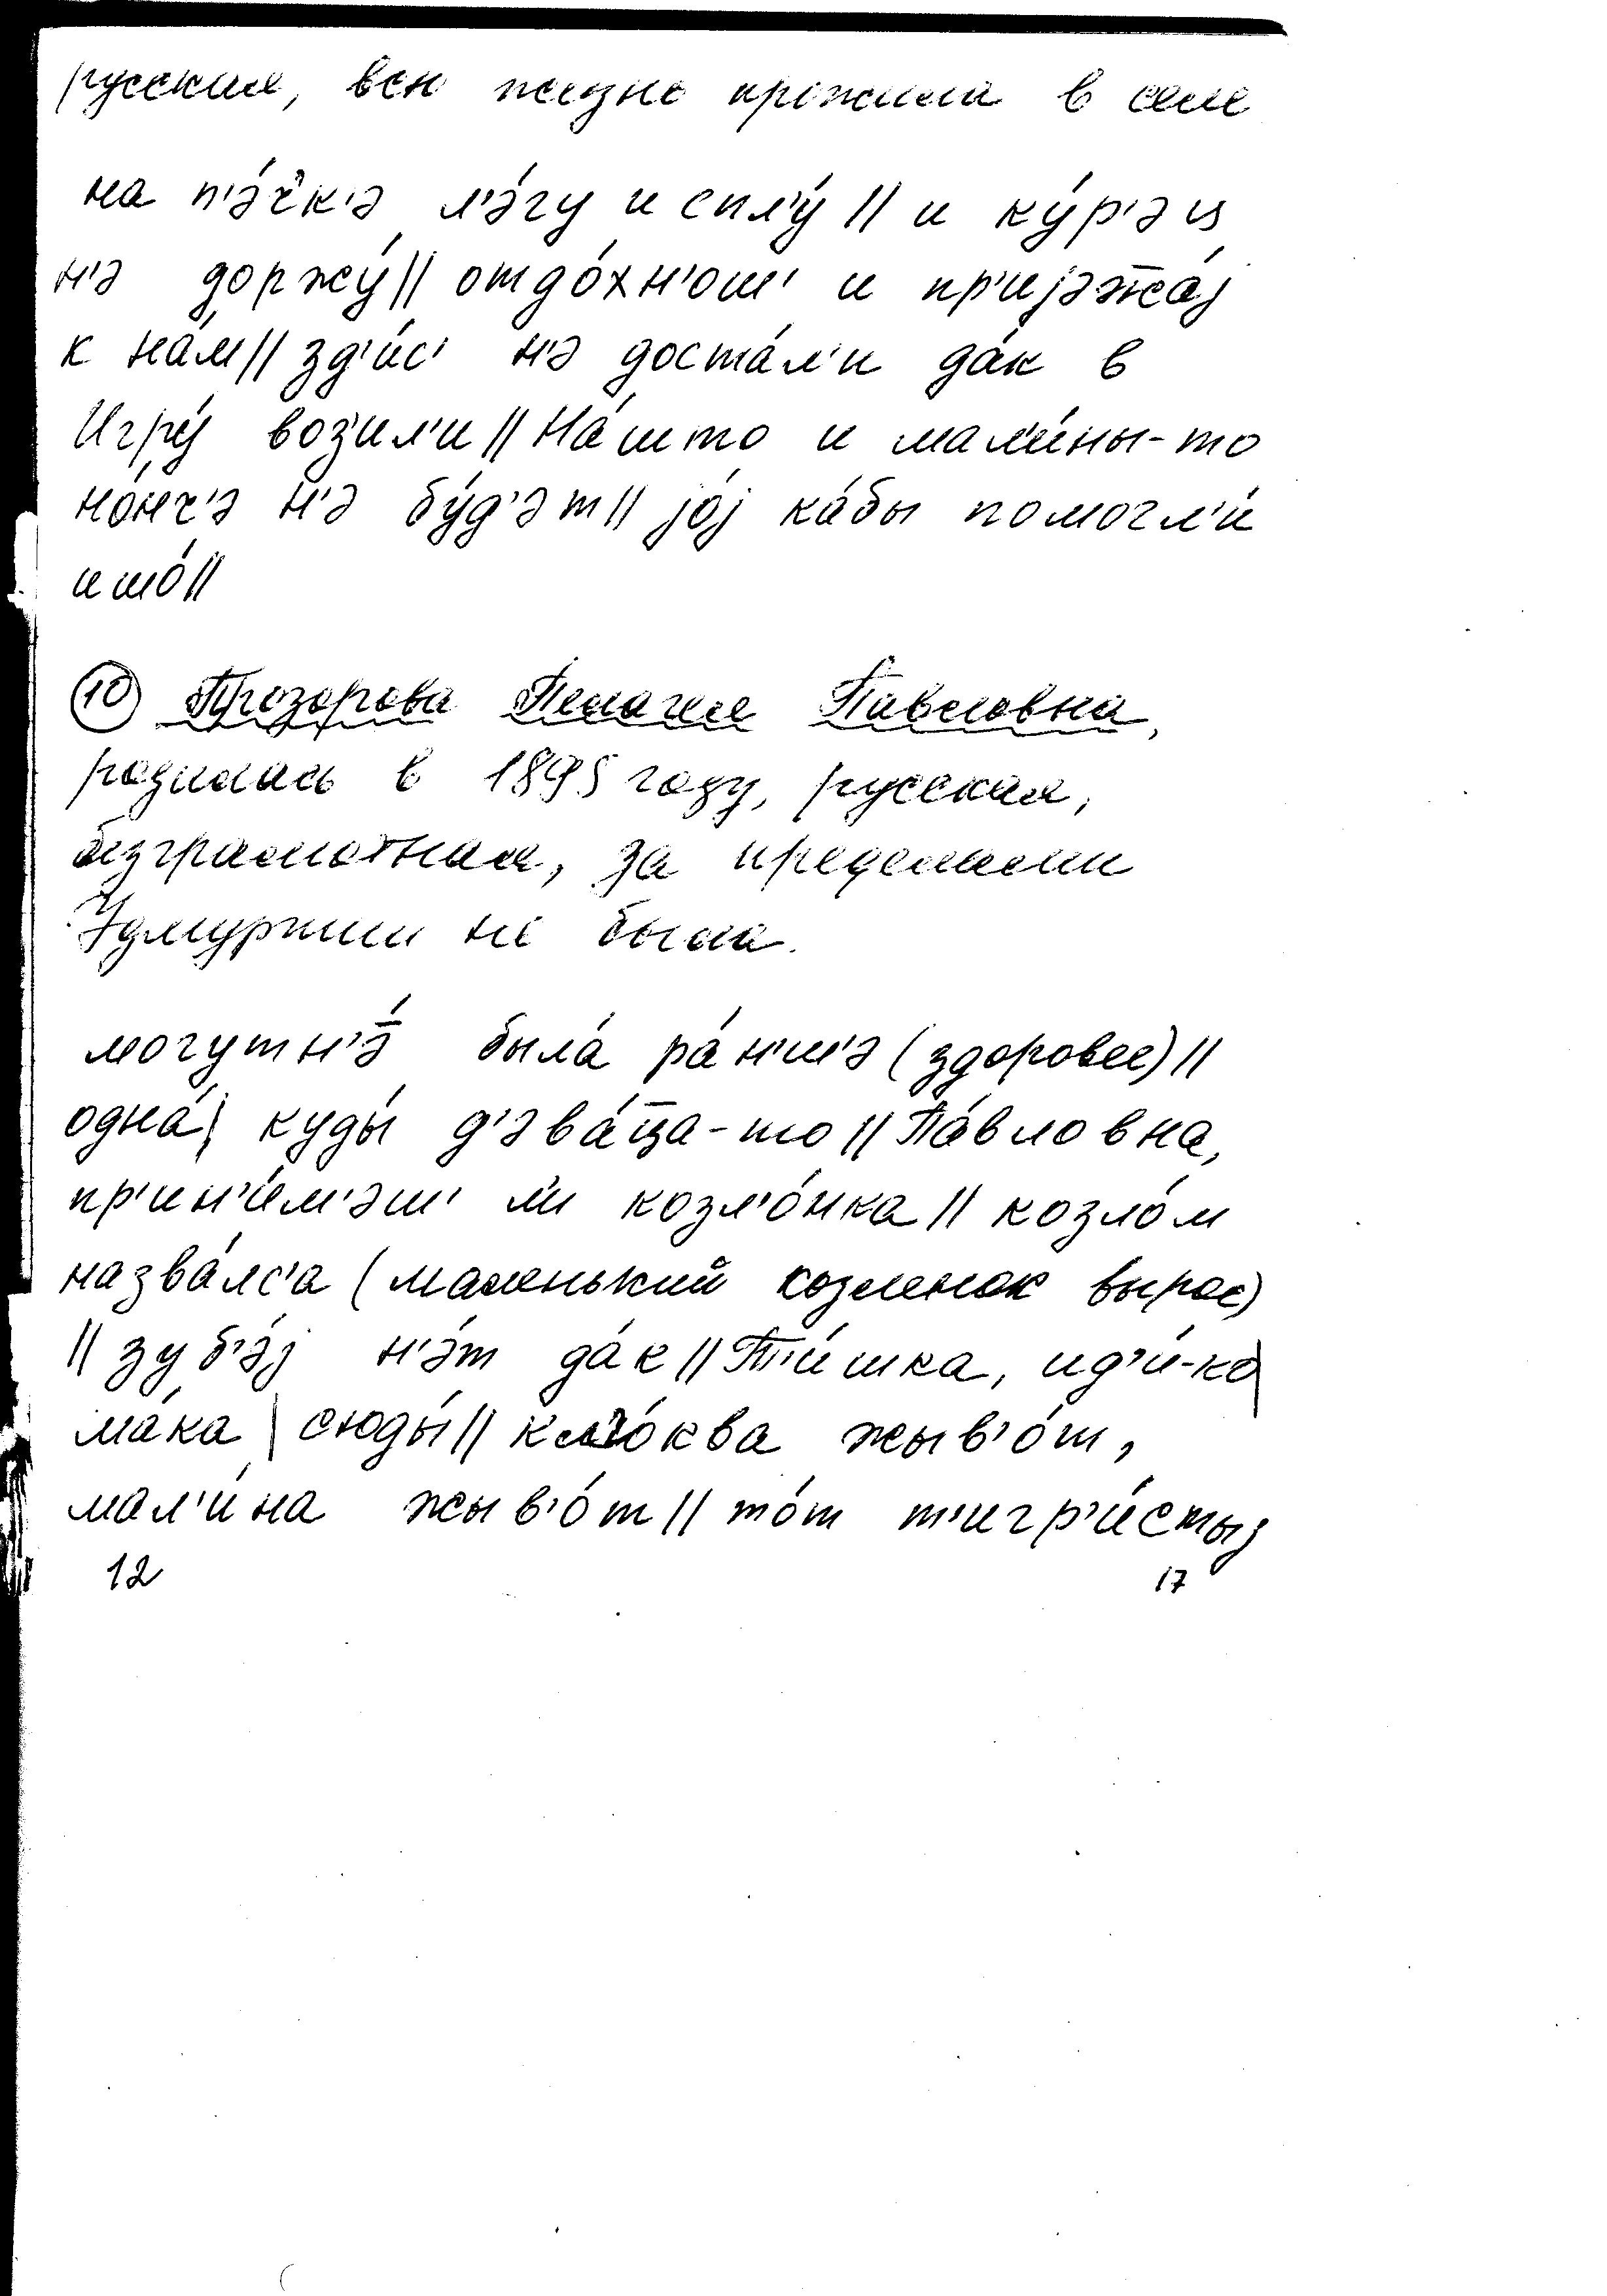 русская, всю жизнь прожила в селе
на п'э́ч'к'э л'э́гу и спл'у́ || и ку́р'эц
н'э доржу́ || отдо́хн'ош' и пр'ијэж̅а́ј
к на́м || зд'и́с' н'э доста́л'и да́к в
Игру́ воз'ил'и || На́ што и мал'и́ны-то
но́нч'э н'э бу́д'эт || јо́ј ка́бы помогл'и́
ишо́ ||
⑩ Прозорова Пелагея Павловна,
родилась в 1895 году, русская,
безграмотная, за пределами
Удмуртии не была.
могутн'э̅́ была́ ра́н'ш'э (здоровее) ||
одна́ | куды́ д'эва́ц̅а-то || Па́вловна,
пр'ин'и́м'эш' л'и козл'о́нка || козло́м
назва́лс'а (маленький козленок вырос)
|| зуб'э́ј н'э́т да́к || Т'и́шка, ид'и́-ко |
ма́ка | сюды́ || кл'о́ква жыв'о́т,
мал'и́на жыв'о́т || то́т т'игр'и́стыј
12 17